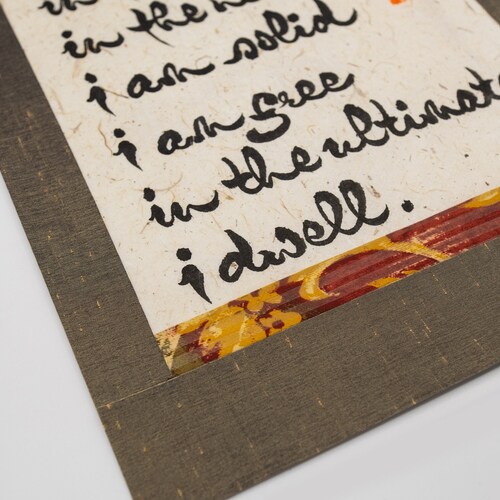 in the
i am solid
i am free
in the ultimate
i dwell.